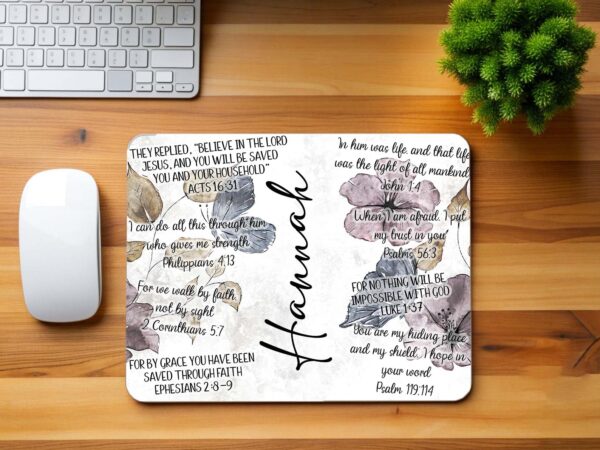 THEY REPLIED, "BELIEVE IN THE LORD
JESUS, AND YOU WILL BE SAVED
YOU AND YOUR HOUSEHOLD"
ACTS 16:31
I can do all this through him
who gives me strength
Philippians 4:13
For we walk by faith,
not by sight
2 Corinthians 5:7
FOR BY GRACE YOU HAVE BEEN
SAVED THROUGH FAITH
EPHESIANS 2:8-9
Hannah
In him was life, and that life
was the light of all mankind
John 1:4
"When I am afraid, I put
my trust in you"
Psalms 56:3
FOR NOTHING WILL BE
IMPOSSIBLE WITH GOD
LUKE 1:37
You are my hiding place
and my shield. I hope in
your word
Psalm 119:114